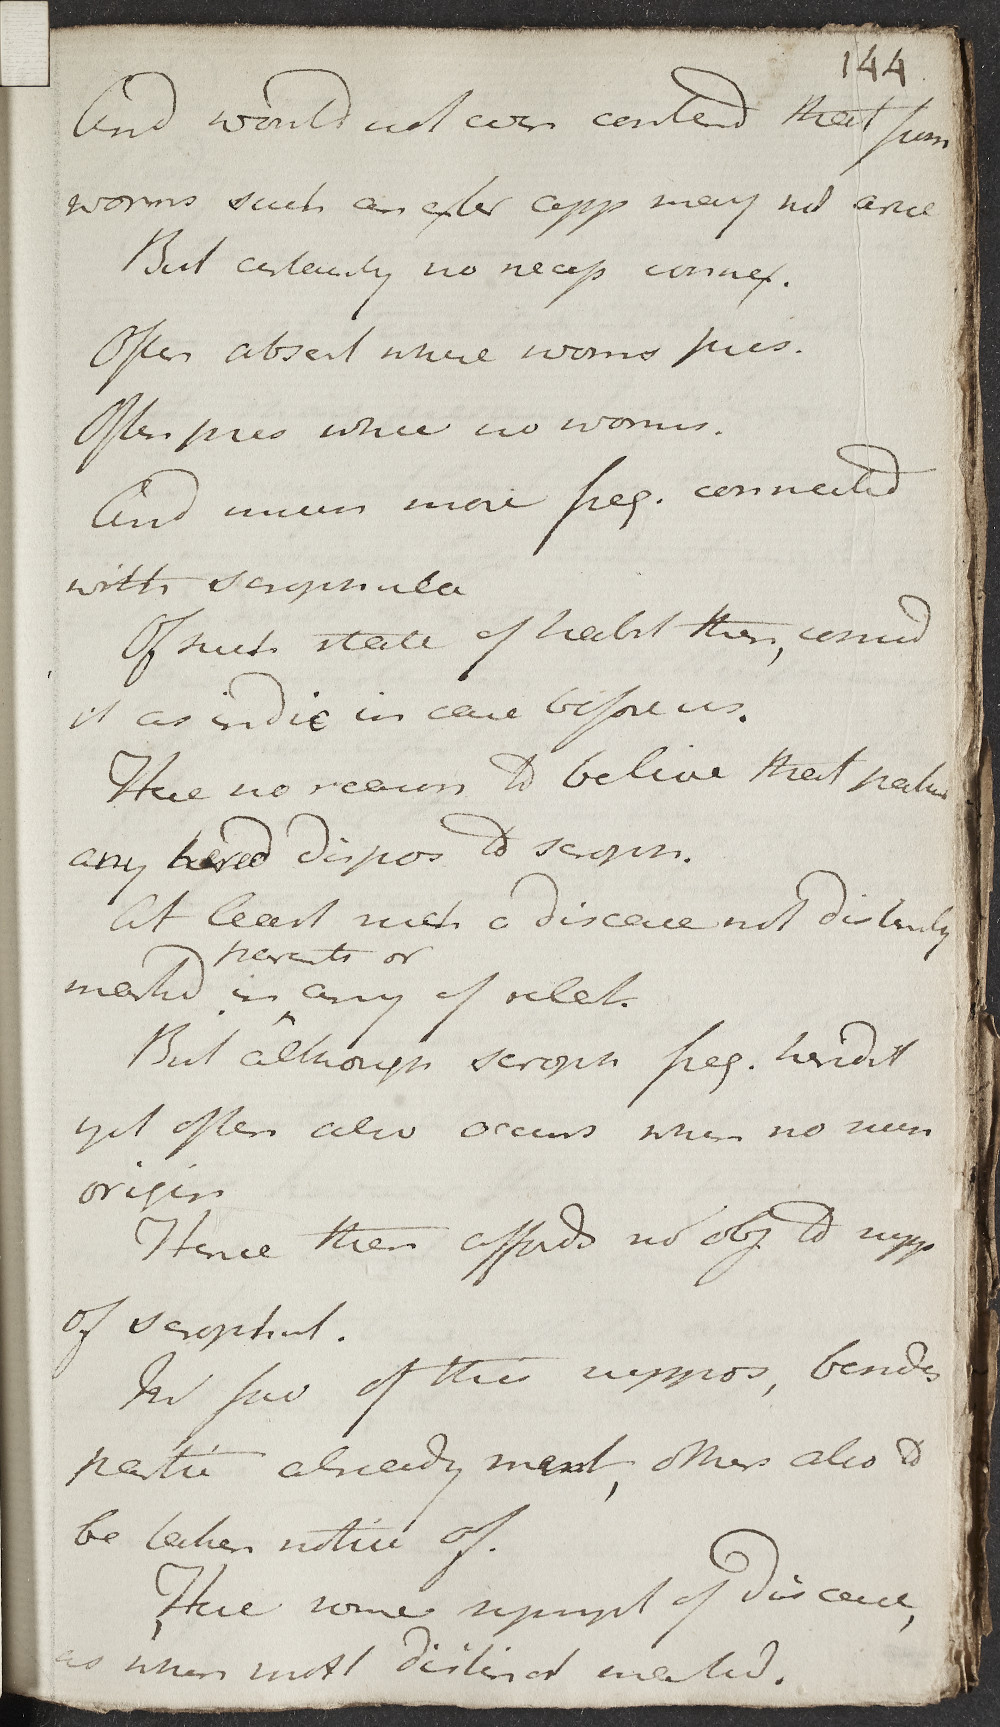 144
And would not even contend that from
worms such an exter app may not arise
But certainly no necess connex.
Often absent where worms pres.
Often pres where no worms.
And much more freq. connected
with scrophula
Of such state of habit then, consid
it as indic in case before us.
Have no reason to believe that
any hered dispos to scroph.
At least such a disease not distinctly
marked in any of relat.
parents or
But although scroph freq. heredit
yet often also occurs when no such
origin
Hence then affords no obj to supp
of scrophul.
In fav of this suppos, besides
partic already ment, others also to
be taken notice of.
Have some sympt of disease,
as when most distinct marked.